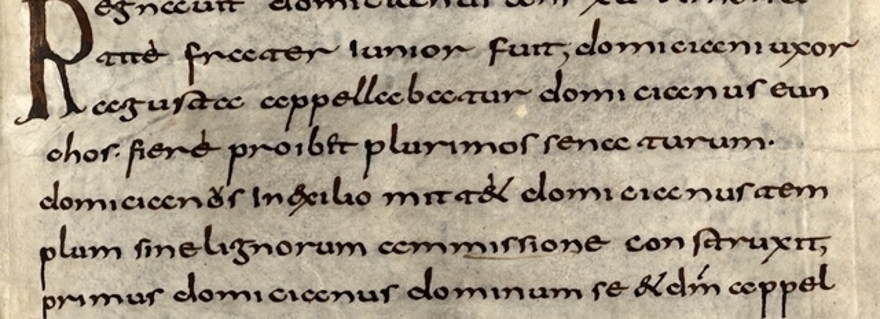 Regnauit domicianus ann xu
frater iunior fuit; domiciani uxor
augusta appellabatur domicianus eun
chos. fierẻ proibet plurimos senaturum.
domicianus In exilio mitt& domicianus tem
plum sine lignorum ammissione construxit;
primus domicianus dominum se & dm̄ appel